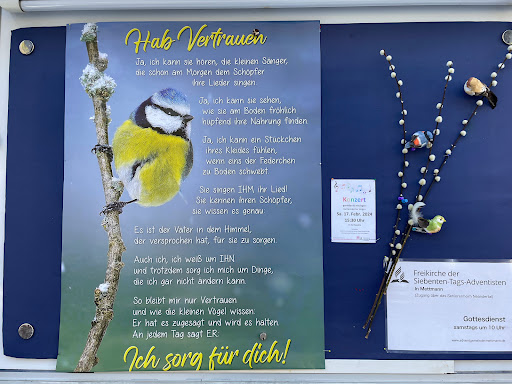 Hab Vertrauen
Ja, ich kann sie hören, die kleinen Sänger,
die schon am Morgen dem Schöpfer
ihre Lieder singen.
Ja, ich kann sie sehen,
wie sie am Boden fröhlich
hüpfend ihre Nahrung finden.
Ja, ich kann ein Stückchen
ihres Kleides fühlen,
wenn eins der Federchen
zu Boden schwebt.
Sie singen IHM ihr Lied!
Sie kennen ihren Schöpfer,
sie wissen es genau.
Es ist der Vater in dem Himmel,
der versprochen hat, für sie zu sorgen.
Auch ich, ich weiß um IHN
und trotzdem sorg ich mich um Dinge,
die ich gar nicht ändern kann.
So bleibt mir nur Vertrauen
und wie die kleinen Vögel wissen:
Er hat es zugesagt und wird es halten.
An jedem Tag sagt ER:
Ich sorg für dich!
Konzert
Sa. 17. Febr. 2024
15:30 Uhr
Freikirche der
Siebenten-Tags-Adventisten
in Mettmann
Gottesdienst
samstags um 10 Uhr